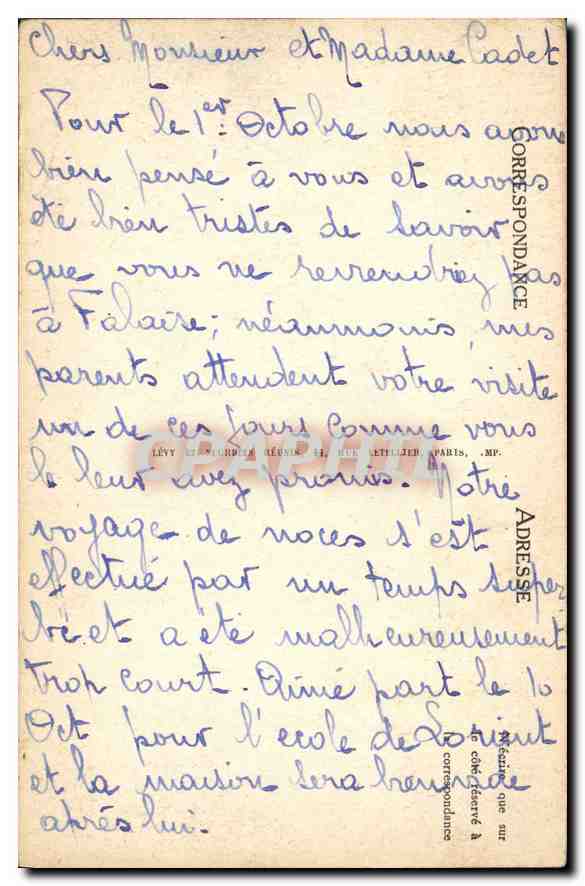 Chers Monsieur et Madame Cadet
Pour le 1er Octobre nous avons
bien pensé à vous et avons
été bien tristes de savoir
que vous ne reviendrez pas
à Falaise; néanmoins, mes
parents attendent votre visite
un de ces jours comme vous
le leur avez promis. Notre
voyage de noces s'est
effectué par un temps super
be et a été malheureusement
trop court. Aimé part le 10
Oct pour l'école de Lorient
et la maison sera bien vide
après lui.
CORRESPONDANCE
ADRESSE
N'écrire que sur
le côté réservé à
la correspondance
LÉVY ET NEURDEIN RÉUNIS, 44, RUE LETELLIER, PARIS, IMP.
DELCAMPE